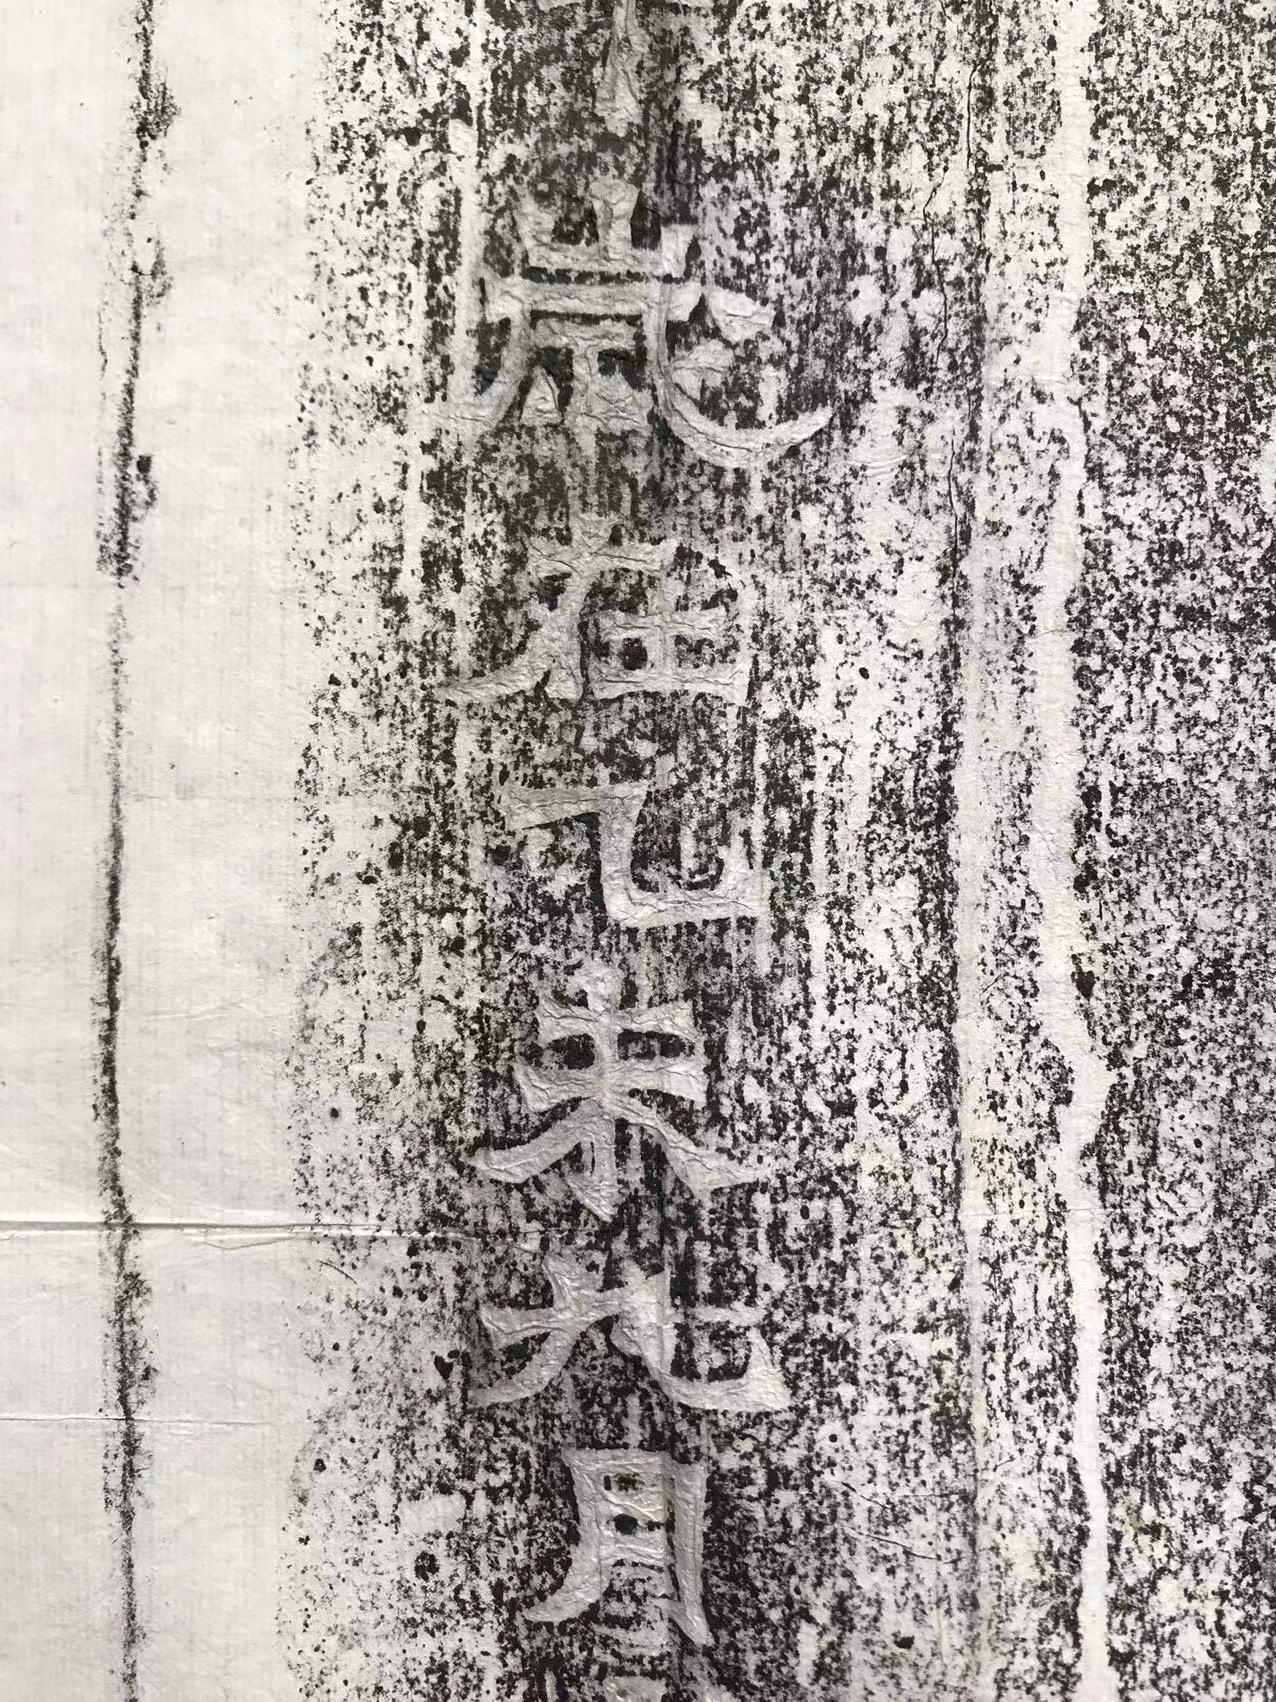 歲在己未九月